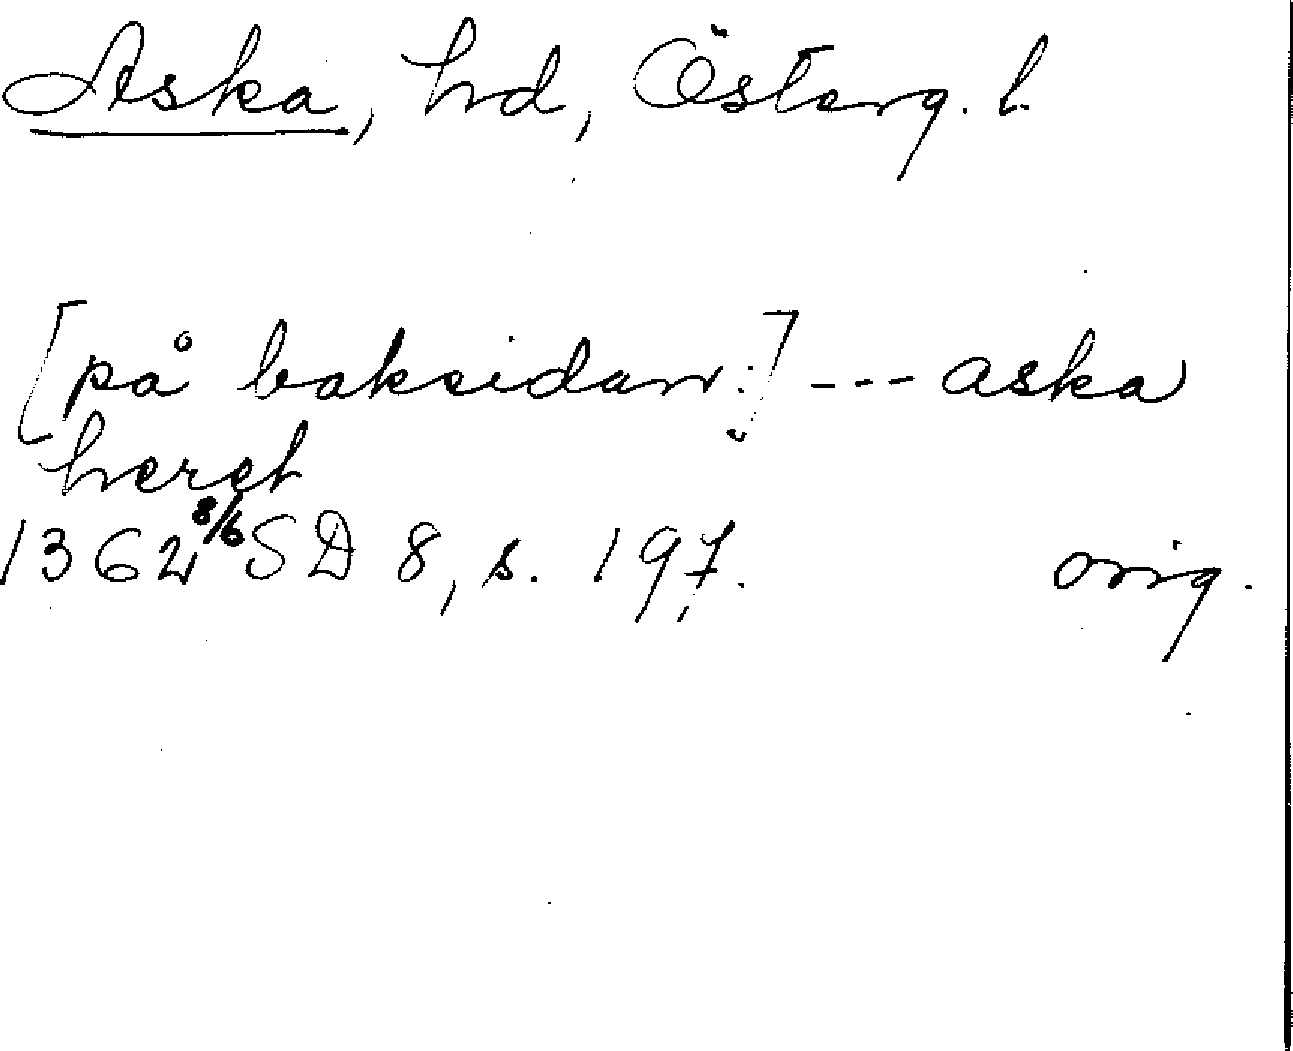 Aska, hd, Österg. l.
[på baksidan:] --- aska
heret
1362 8/6 SD 8, s. 197. orig.